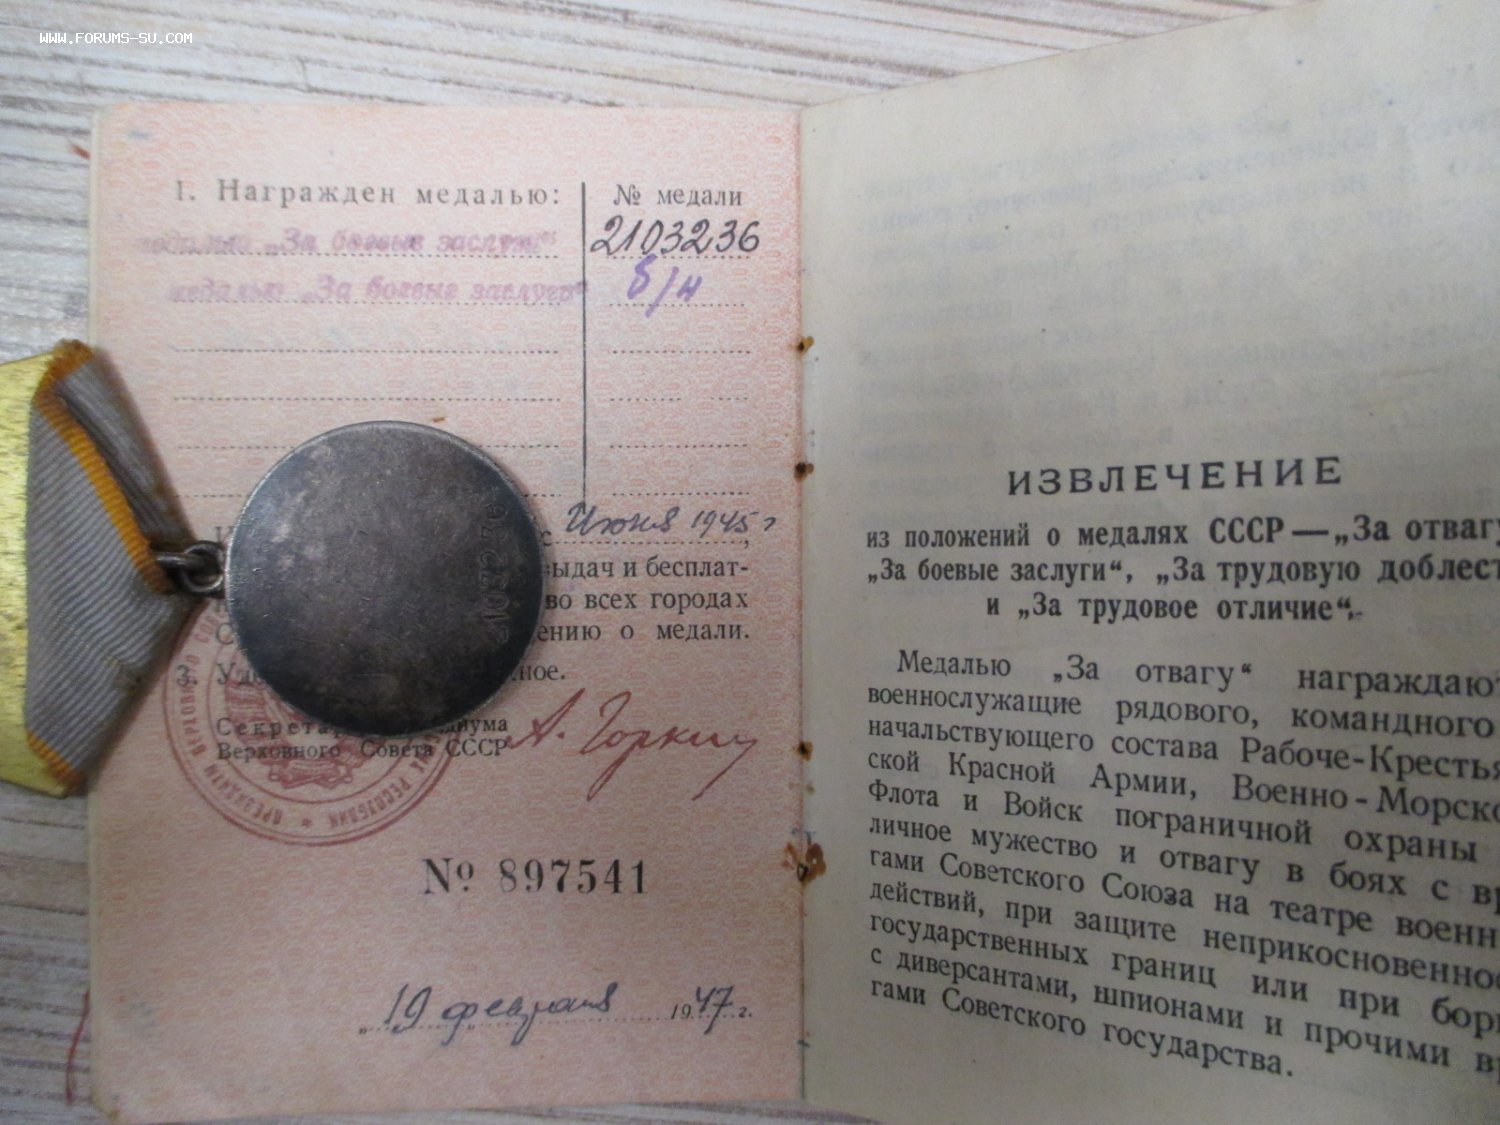 WWW.FORUMS-SU.COM
1. Награжден медалью:
№ медали
медалью „За боевые заслуги“
2103236
медалью „За боевые заслуги“
б/н
с Июня 1945 г
выдач и бесплат-
во всех городах
ению о медали.
3.
ное.
Секретар
диума
Верховного Совета СССР
А. Горкин
№ 897541
„19 февраля 1947 г.
2103236
ИЗВЛЕЧЕНИЕ
из положений о медалях СССР — „За отвагу
„За боевые заслуги“, „За трудовую доблест
и „За трудовое отличие“.
Медалью „За отвагу“ награждают
военнослужащие рядового, командного
начальствующего состава Рабоче-Крестья
ской Красной Армии, Военно-Морско
Флота и Войск пограничной охраны
личное мужество и отвагу в боях с вр
гами Советского Союза на театре военн
действий, при защите неприкосновеннос
государственных границ или при борь
с диверсантами, шпионами и прочими вр
гами Советского государства.